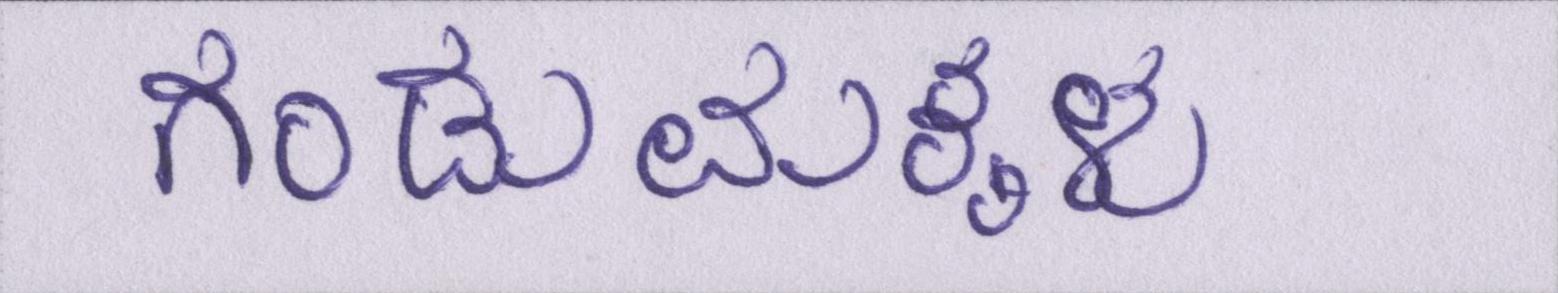 ಗಂಡುಮಕ್ಕಳು